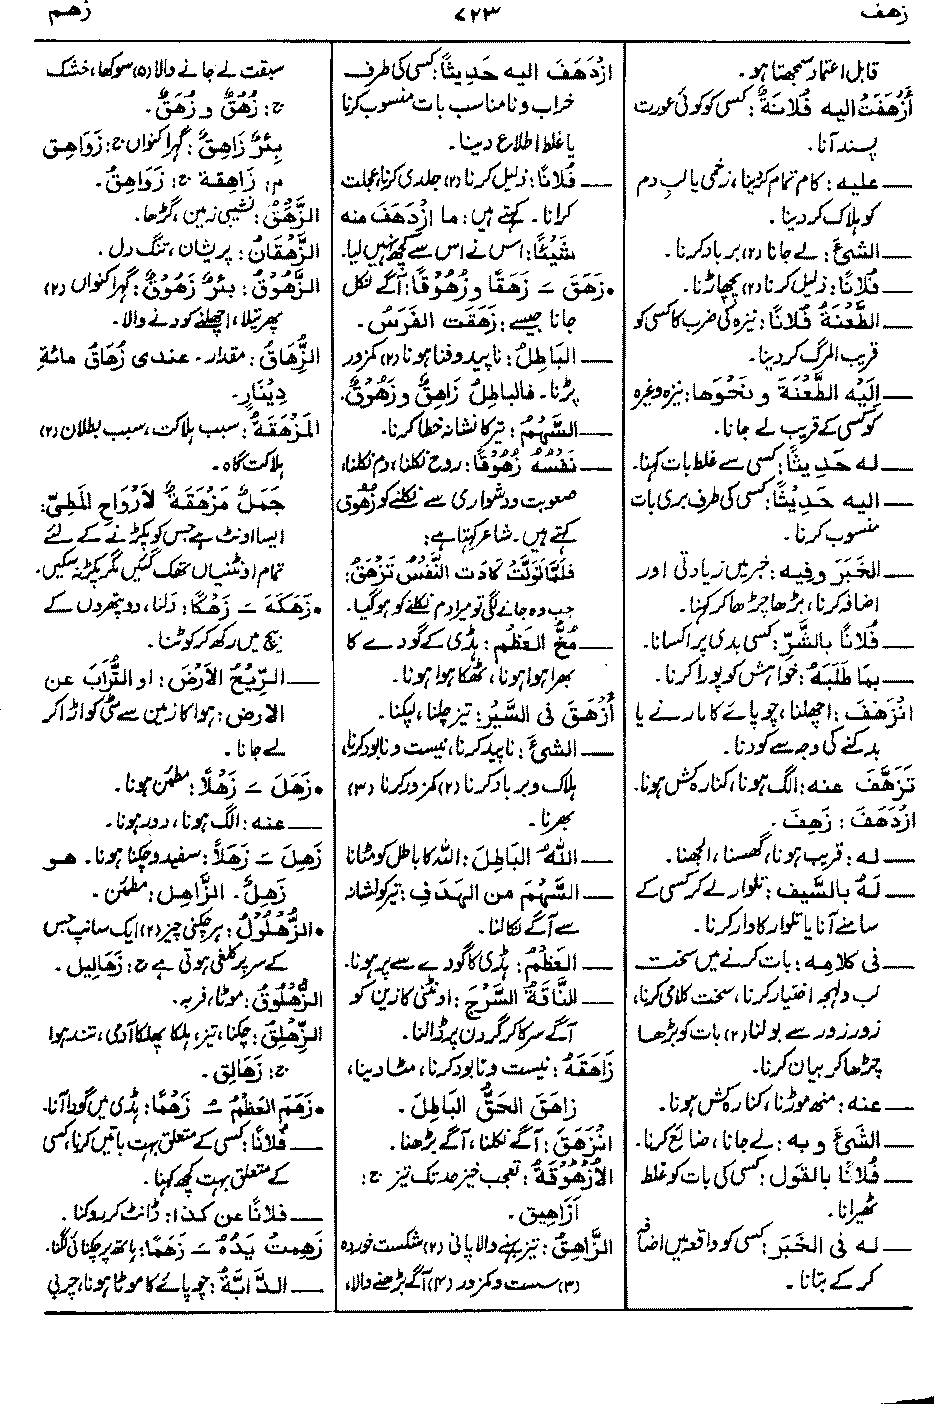 زهف
٧٢٣
زهم
قابل اعتماد سمجھتا ہو۔
أُزْهِفَتْ اليه فُلَانَةٌ: کسی کو کوئی عورت
پسند آنا۔
— عليه: کام تمام کردینا، زخمی یا لب دم
کو ہلاک کر دینا۔
— الشئَ: لے جانا (٢) برباد کرنا۔
— فُلَانًا: ذلیل کرنا (٢) پچھاڑنا۔
— الطَّعْنَةُ فُلَانًا: نیزہ کی ضرب کا کسی کو
قریب المرگ کر دینا۔
— اِلَيْهِ الطَّعْنَةَ و نَحْوَها: نیزہ وغیرہ
کو کسی کے قریب لے جانا۔
— له حَدِيثًا: کسی سے غلط بات کہنا۔
— اليه حَدِيْثًا: کسی کی طرف بری بات
منسوب کرنا۔
— الخَبَرَ وفيه: خبر میں زیادتی اور
اضافہ کرنا، بڑھا چڑھا کر کہنا۔
— فُلَانًا بالشَّرِّ: کسی بدی پر اکسانا۔
— بِما طَلَبَهُ: خواہش کو پورا کرنا۔
انْزَهَفَ: اچھلنا، چوپائے کا مارنے یا
بدکنے کی وجہ سے کودنا۔
تَزَهَّفَ عنه: الگ ہونا، کنارہ کش ہونا۔
ازْدَهَفَ: زَهِفَ۔
— له: قریب ہونا، گھسنا، الجھنا۔
— لَهُ بالسَّيف: تلوار لے کر کسی کے
سامنے آنا یا تلوار کا وار کرنا۔
— فى كلامه: بات کرنے میں سخت
لب و لہجہ اختیار کرنا، سخت کلامی کرنا،
زور زور سے بولنا (٢) بات کو بڑھا
چڑھا کر بیان کرنا۔
— عنه: منھ موڑنا، کنارہ کش ہونا۔
— الشَّئَ و به: لے جانا، ضائع کرنا۔
— فُلَانًا بالقَول: کسی کی بات کو غلط
ٹھیرانا۔
— له فى الخَبَرَ: کسی کو واقعہ میں اضافہ
کر کے بتانا۔
ازْدَهَفَ اليه حَدِيثًا: کسی کی طرف
خراب و نا مناسب بات منسوب کرنا
یا غلط اطلاع دینا۔
— فُلَانًا: ذلیل کرنا (٢) جلدی کرنا، عجلت
کرانا۔ کہتے ہیں: ما ازْدَهَفَ منه
شَيْئًا: اس نے اس سے کچھ نہیں لیا۔
•زَهَقَ ـَ زَهقًا و زُهُوْقًا: آگے نکل
جانا جیسے: زَهَقَت الفَرَسُ۔
— البَاطِلُ: ناپید و فنا ہونا (٢) کمزور
پڑنا۔ فالباطِلُ زَاهِقٌ و زَهُوْقٌ۔
— السَّهْمُ: تیر کا نشانہ خطا کرنا۔
— نَفْسُهُ زُهُوْقًا: روح نکلنا، دم نکلنا،
صعوبت و دشواری سے نکلنے کو زُهُوق
کہتے ہیں۔ شاعر کہتا ہے:
فَلَمَّا تَوَلَّتْ كَادَت النَّفْسُ تَزهَقُ:
جب وہ جانے لگی تو میرا دم نکلنے کو ہو گیا۔
— مُخُّ العَظْمُ: ہڈی کے گودے کا
بھرا ہوا ہونا، ٹھکا ہوا ہونا۔
أَزْهَقَ فى السَّيْر: تیز چلنا، لپکنا۔
— الشئَ: ناپید کرنا، نیست و نابود کرنا،
ہلاک و برباد کرنا (٢) کمزور کرنا (٣)
بھرنا۔
— اللهُ البَاطِلَ: اللہ کا باطل کو مٹانا
— السَّهْمَ من الهَدَفِ: تیر کو نشانہ
سے آگے نکالنا۔
— العَظْمُ: ہڈی کا گودے سے پر ہونا۔
— النَّاقَةُ السَّرْجَ: اونٹنی کا زین کو
آگے سرکا کر گردن پر ڈالنا۔
زَاهَقَهُ: نیست و نابود کرنا، مٹا دینا،
زاهَقَ الحَقُّ البَاطِلَ۔
انْزَهَقَ: آگے نکلنا، آگے بڑھنا۔
الأُزْهُوْقَةُ: تعجب خیز حد تک تیز ج:
أَزَاهِيق۔
الزَّاهِقُ: تیز بہنے والا پانی (٢) شکست خوردہ
(٣) سست و کمزور (٤) آگے بڑھنے والا،
سبقت لے جانے والا (٥) سوکھا، خشک
ج: زُهْقٌ و زُهَّقٌ۔
بِئْرٌ زَاهِقٌ: گہرا کنواں ج: زَواهِق
م: زَاهِقة ج: زَواهِقُ۔
الزَّهَقُ: نشیبی زمین، گڑھا۔
الزَّهْقَانُ: پریشان، تنگ دل۔
الزَّهُوْقُ: بِئْرٌ زَهُوْقٌ: گہرا کنواں (٢)
پھرتیلا، اچھلنے کودنے والا۔
الزُّهَاقُ: مقدار۔ عندى زُهَاقُ مائة
دِيْنَارٍ۔
المَزْهَقَةُ: سبب ہلاکت، سبب بطلان (٢)
ہلاکت گاہ۔
جَمَلٌ مَزْهَقَةٌ لأَرْوَاحِ المَطِىِّ:
ایسا اونٹ ہے جس کو پکڑنے کے لئے
تمام اونٹنیاں تھک گئیں مگر پکڑ نہ سکیں۔
•زَهَكَهُ ـَ زَهْكًا: دلنا، دو پتھروں کے
بیچ میں رکھ کر کوٹنا۔
— الرِّيْحُ الاَرْضَ: او التُّرَابَ عن
الارض: ہوا کا زمین سے مٹی کو اڑا کر
لے جانا۔
•زَهَلَ ـَ زَهْلاً: مطمئن ہونا۔
— عنه: الگ ہونا، دور ہونا۔
زَهِلَ ـَ زَهَلاً: سفید و چکنا ہونا۔ هو
زَهِلٌ۔ الزَّاهِل: مطمئن۔
•الزُّهْلُولُ: ہر چکنی چیز (٢) ایک سانپ جس
کے سر پر کلغی ہوتی ہے ج: زَهَالِيل۔
الزُّهْلُوقُ: موٹا، فربہ۔
الزِّهْلِقُ: چکنا، تیز، ہلکا پھلکا آدمی، تند ہوا
ج: زَهَالِق۔
•زَهَمَ العَظْمُ ـُ زَهْمًا: ہڈی میں گودا آنا۔
— فُلَانًا: کسی کے متعلق بہت باتیں کرنا، کسی
کے متعلق بہت کچھ کہنا۔
— فلانًا عن كذا: ڈانٹ کر روکنا۔
زَهِمَتْ يَدُهُ ـَ زَهَمًا: ہاتھ پر چکنائی لگنا۔
— الدَّابَّةُ: چوپائے کا موٹا ہونا، چربی